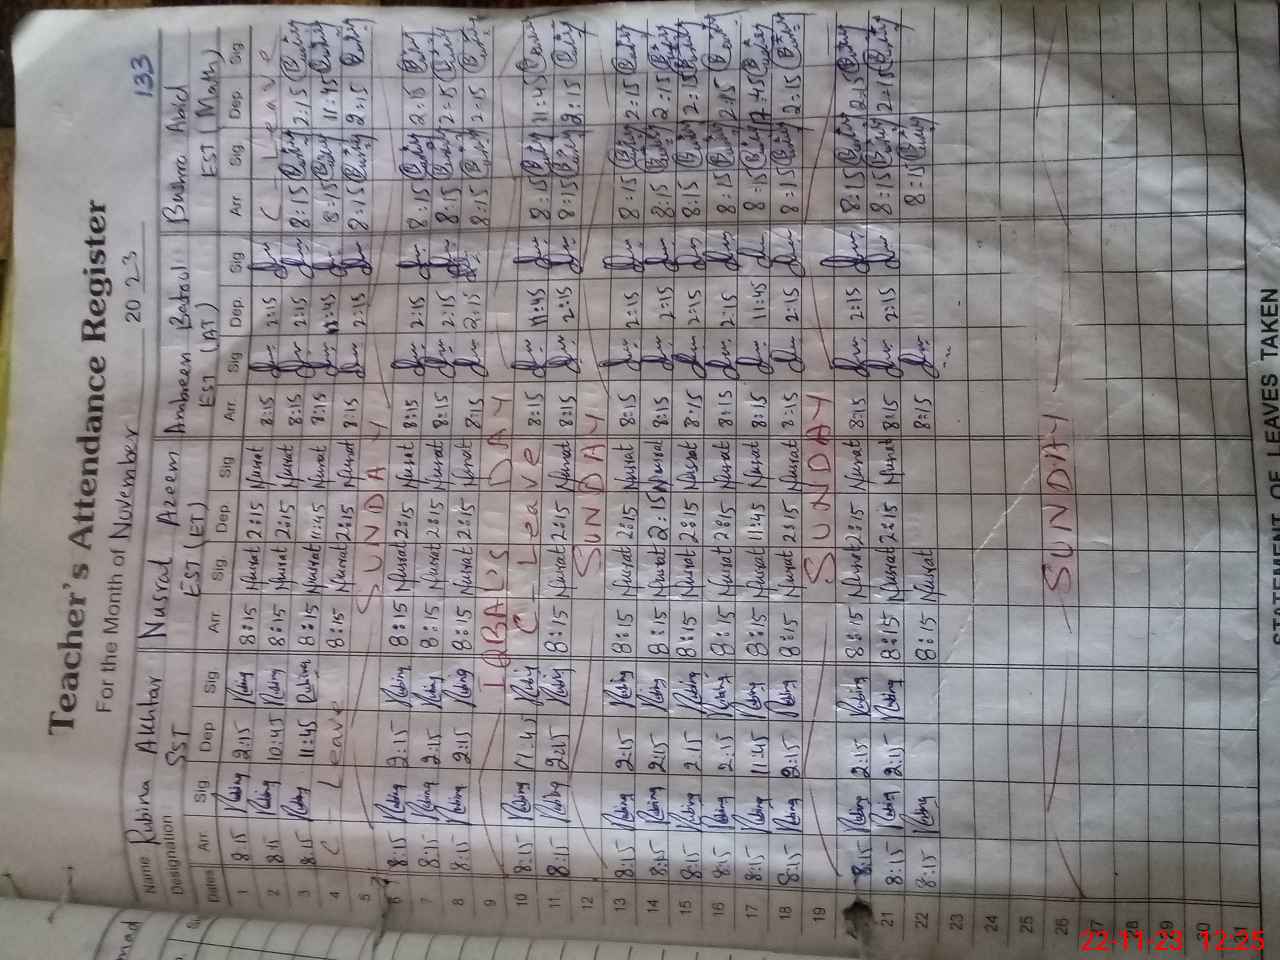 133
Teacher's Attendance Register
For the Month of November 2023
Name Rubina Akhtar Nusrad Azeem Ambreen Batool Bushra Abid
Designation SST EST (ET) EST (AT) EST (Math)
Dates Arr Sig Dep Sig Arr Sig Dep Sig Arr. Sig Dep. Sig Arr. Sig Dep Sig
1 8:15 Rubina 2:15 Rubina 8:15 Nusrat 2:15 Nusrat 8:15 2:15 C - Leave
2 8:15 Rubina 10:45 Rubina 8:15 Nusrat 2:15 Nusrat 8:15 2:15 8:15 2:15
3 8:15 Rubina 11:45 Rubina 8:15 Nusrat 11:45 Nusrat 8:15 11:45 8:15 11:45
4 C - Leave 8:15 Nusrat 2:15 Nusrat 8:15 2:15 8:15 2:15
5 SUNDAY
6 8:15 Rubina 2:15 Rubina 8:15 Nusrat 2:15 Nusrat 8:15 2:15 8:15 2:15
7 8:15 Rubina 2:15 Rubina 8:15 Nusrat 2:15 Nusrat 8:15 2:15 8:15 2:15
8 8:15 Rubina 2:15 Rubina 8:15 Nusrat 2:15 Nusrat 8:15 2:15 8:15 2:15
9 IQBAL'S DAY
10 8:15 Rubina 11:45 Rubina C - Leave 8:15 11:45 8:15 11:45
11 8:15 Rubina 2:15 Rubina 8:15 Nusrat 2:15 Nusrat 8:15 2:15 8:15 2:15
12 SUNDAY
13 8:15 Rubina 2:15 Rubina 8:15 Nusrat 2:15 Nusrat 8:15 2:15 8:15 2:15
14 8:15 Rubina 2:15 Rubina 8:15 Nusrat 2:15 Nusrat 8:15 2:15 8:15 2:15
15 8:15 Rubina 2:15 Rubina 8:15 Nusrat 2:15 Nusrat 8:15 2:15 8:15 2:15
16 8:15 Rubina 2:15 Rubina 8:15 Nusrat 2:15 Nusrat 8:15 2:15 8:15 2:15
17 8:15 Rubina 11:45 Rubina 8:15 Nusrat 11:45 Nusrat 8:15 11:45 8:15
18 8:15 Rubina 2:15 Rubina 8:15 Nusrat 2:15 Nusrat 8:15 2:15 8:15 2:15
19 SUNDAY
8:15 Rubina 2:15 Rubina 8:15 Nusrat 2:15 Nusrat 8:15 2:15 8:15 2:15
21 8:15 Rubina 2:15 Rubina 8:15 Nusrat 2:15 Nusrat 8:15 2:15 8:15 2:15
22 8:15 Rubina 8:15 Nusrat 8:15 8:15
23
24
25
26 SUNDAY
27
28
29
30
31
STATEMENT OF LEAVES TAKEN
mad
22-11-23 12:25